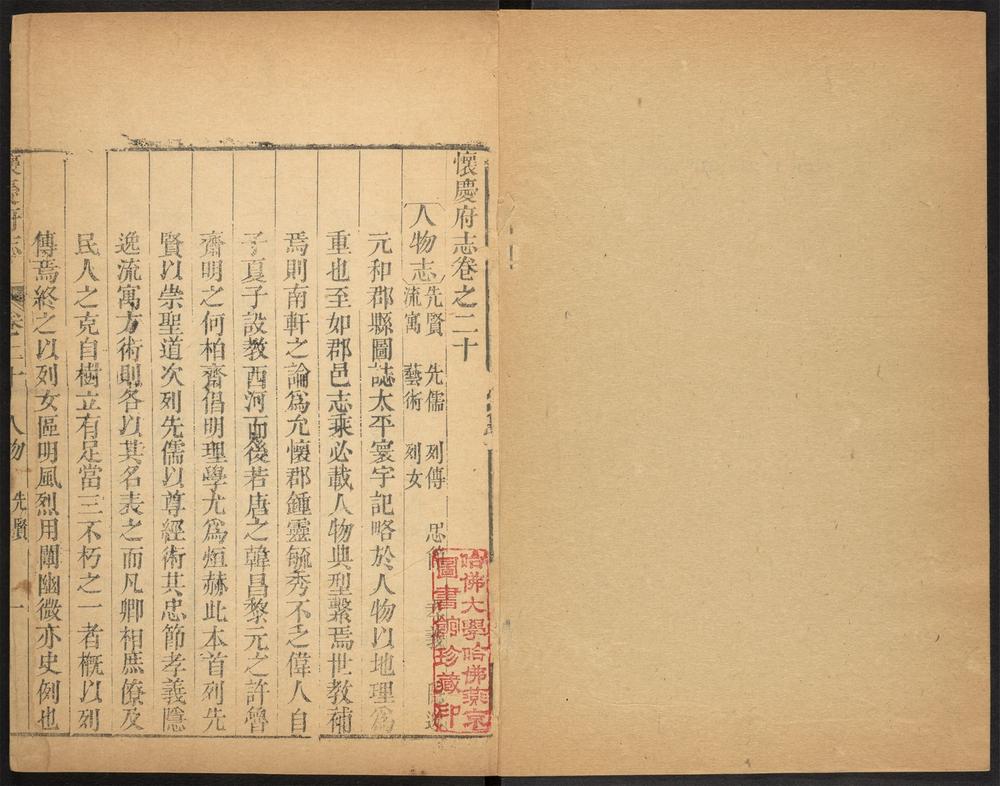 懷慶府志卷之二十
人物志 先賢 先儒 列傳 忠節 孝義 隱逸
流寓 藝術 列女
元和郡縣圖誌太平寰宇記略於人物以地理爲
重也至如郡邑志乘必載人物典型繫焉世教補
焉則南軒之論爲允懷郡鍾靈毓秀不乏偉人自
子夏子設教西河而後若唐之韓昌黎元之許魯
齋明之何柏齋倡明理學尤爲烜赫此本首列先
賢以崇聖道次列先儒以尊經術其忠節孝義隱
逸流寓方術則各以其名表之而凡卿相庶僚及
民人之克自樹立有足當三不朽之一者概以列
傳焉終之以列女區明風烈用闡幽微亦史例也
懷慶府志 卷二十 人物 先賢 一
哈佛大學哈佛燕京
圖書館珍藏印